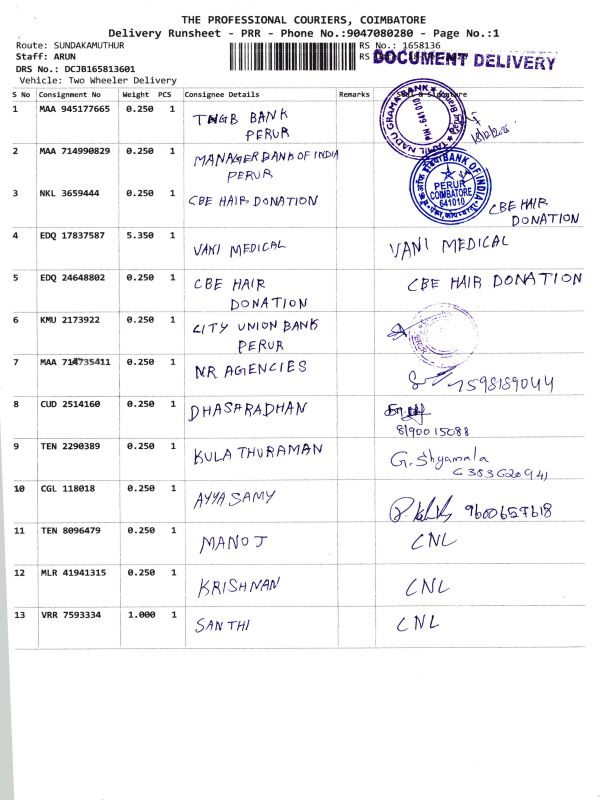 THE PROFESSIONAL COURIERS, COIMBATORE
Delivery Runsheet - PRR - Phone No.:9047080280 - Page No.:1
Route: SUNDAKAMUTHUR
RS No.: 1658136
Staff: ARUN
RS
DOCUMENT DELIVERY
DRS No.: DCJB165813601
Vehicle: Two Wheeler Delivery
S No Consignment No Weight PCS Consignee Details Remarks
1 MAA 945177665 0.250 1 TNGB BANK
PERUR
TAMIL NADU GRAMA BANK
PIN - 641 010
2 MAA 714990829 0.250 1 MANAGER BANK OF INDIA
PERUR
BANK OF INDIA
PERUR
COIMBATORE
641010
3 NKL 3659444 0.250 1 CBE HAIR DONATION CBE HAIR
DONATION
4 EDQ 17837587 5.350 1 VANI MEDICAL VANI MEDICAL
5 EDQ 24648802 0.250 1 CBE HAIR
DONATION
CBE HAIR DONATION
6 KMU 2173922 0.250 1 CITY UNION BANK
PERUR
7 MAA 714735411 0.250 1 NR AGENCIES 7598189044
8 CUD 2514160 0.250 1 DHASARADHAN
8190015088
9 TEN 2290389 0.250 1 KULATHURAMAN G. Shyamala
6383620941
10 CGL 118018 0.250 1 AYYASAMY 9600657618
11 TEN 8096479 0.250 1 MANOJ CNL
12 MLR 41941315 0.250 1 KRISHNAN CNL
13 VRR 7593334 1.000 1 SANTHI CNL